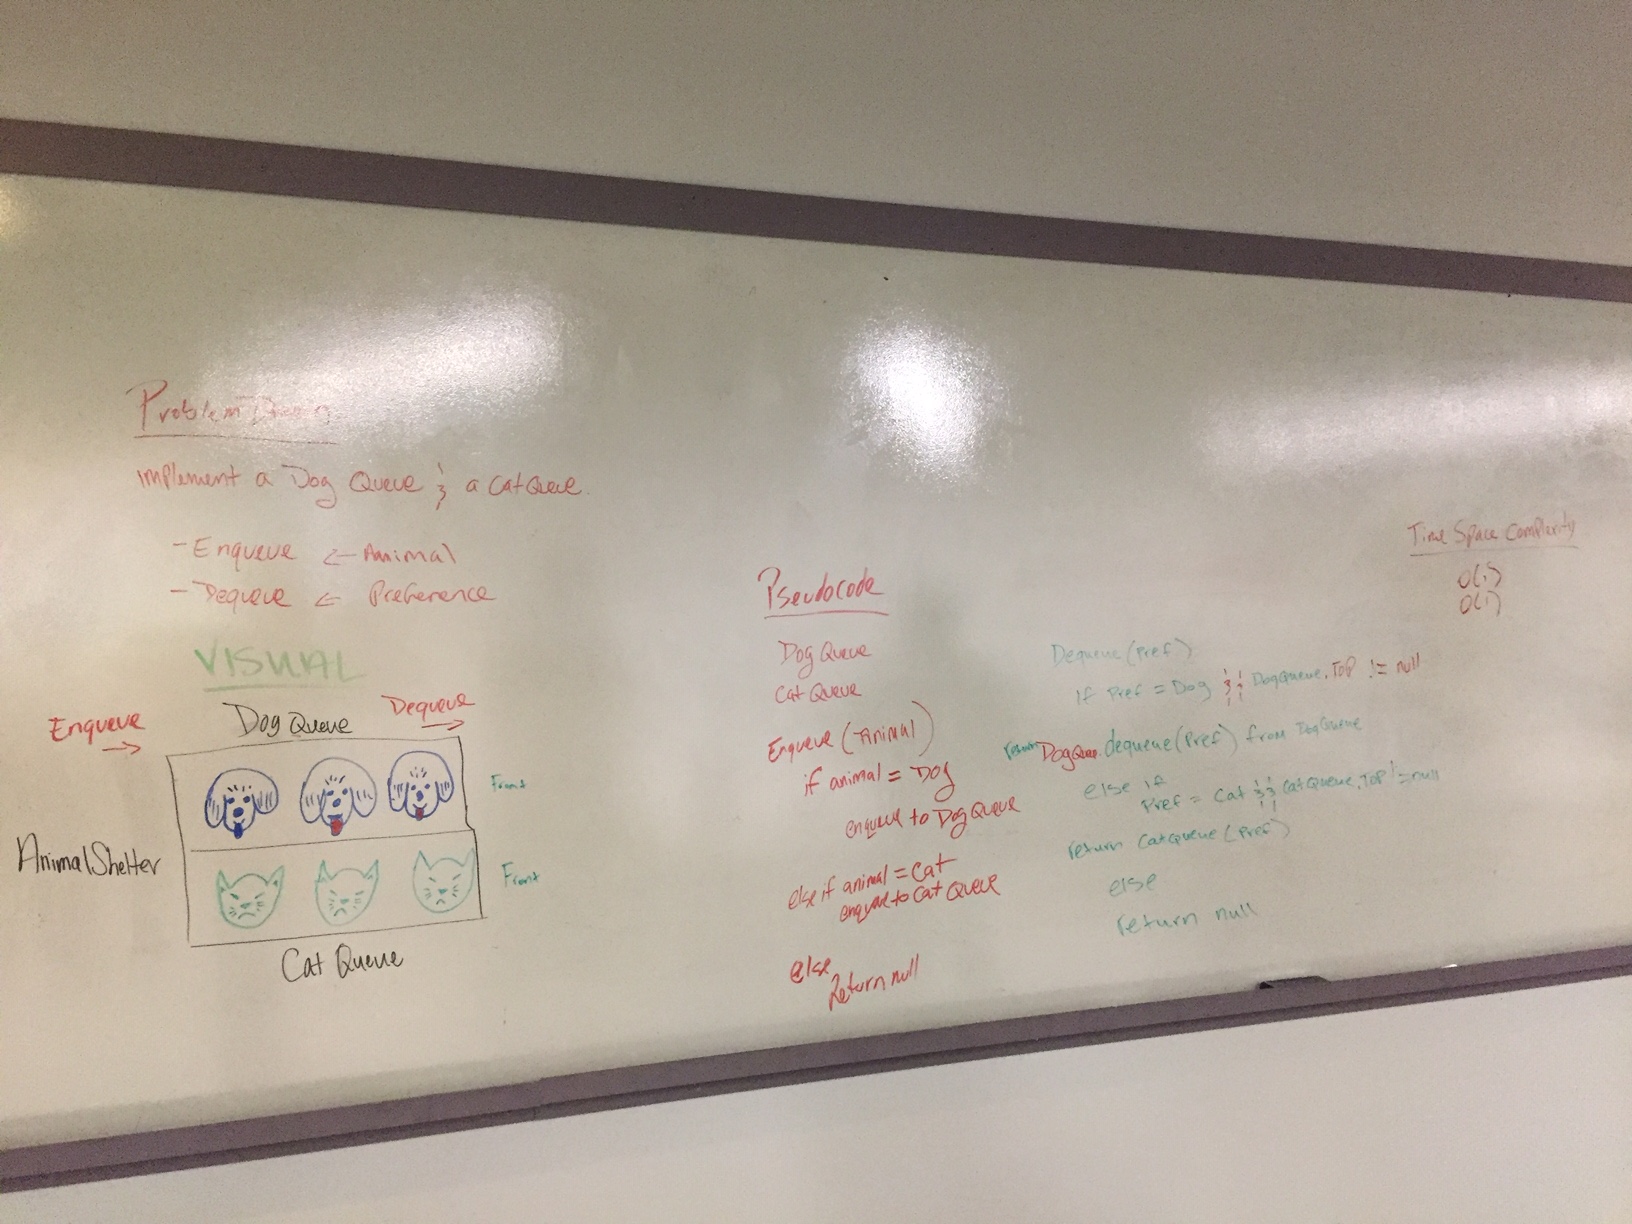 Problem Domain
Implement a Dog Queue & a Cat Queue.
- Enqueue ← Animal
- Dequeue ← Preference
VISUAL
Enqueue →
Dog Queue
Dequeue →
Front
AnimalShelter
Front
Cat Queue
Pseudocode
Dog Queue
Cat Queue
Enqueue (Animal)
if animal = Dog
enqueue to Dog Queue
else if animal = Cat
enqueue to Cat Queue
else
Return null
Dequeue (Pref)
if Pref = Dog && DogQueue.Top != null
return DogQueue.dequeue(Pref) from DogQueue
else if
Pref = Cat && CatQueue.Top != null
return CatQueue(Pref)
else
return null
Time Space Complexity
O(1)
O(1)